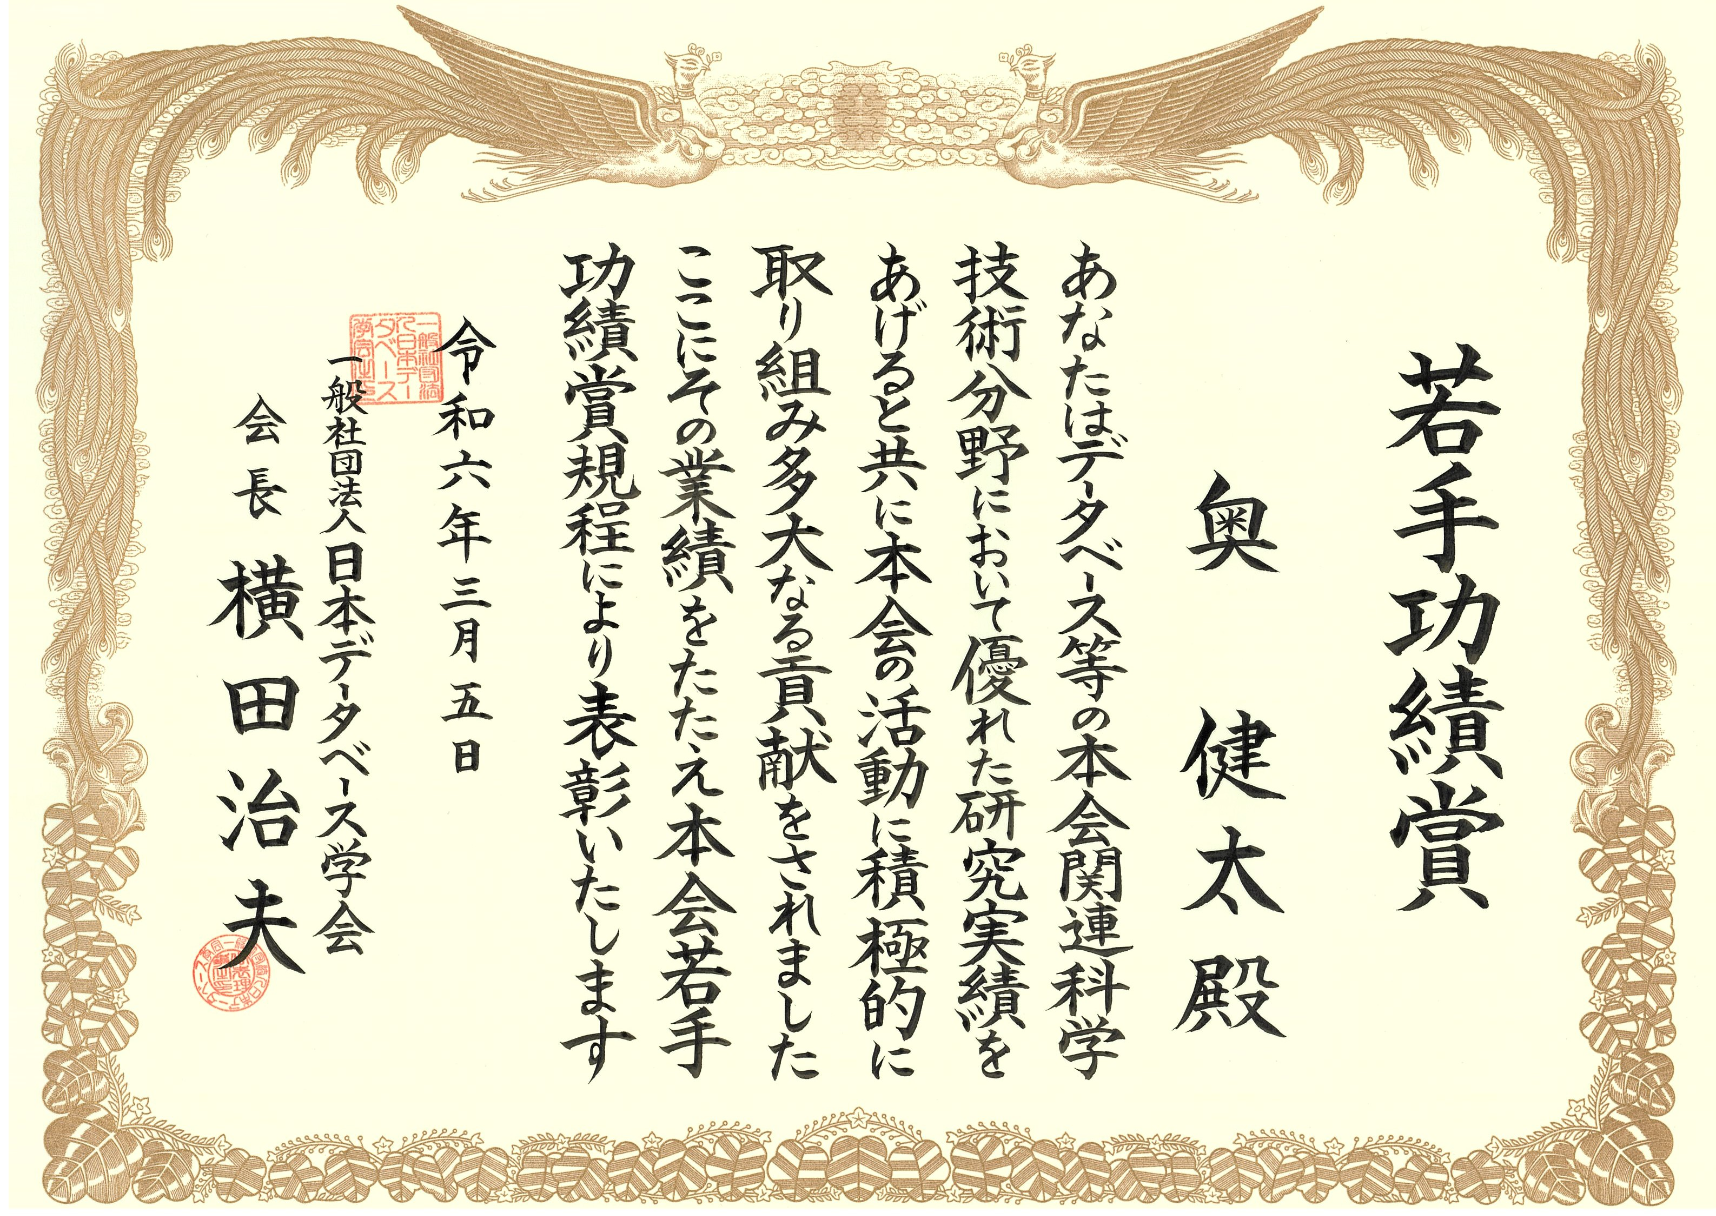 若手功績賞
奥 健太殿
あなたはデータベース等の本会関連科学
技術分野において優れた研究実績を
あげると共に本会の活動に積極的に
取り組み多大なる貢献をされました
ここにその業績をたたえ本会若手
功績賞規程により表彰いたします
令和六年三月五日
一般社団法人日本データベース学会
会長 横田治夫